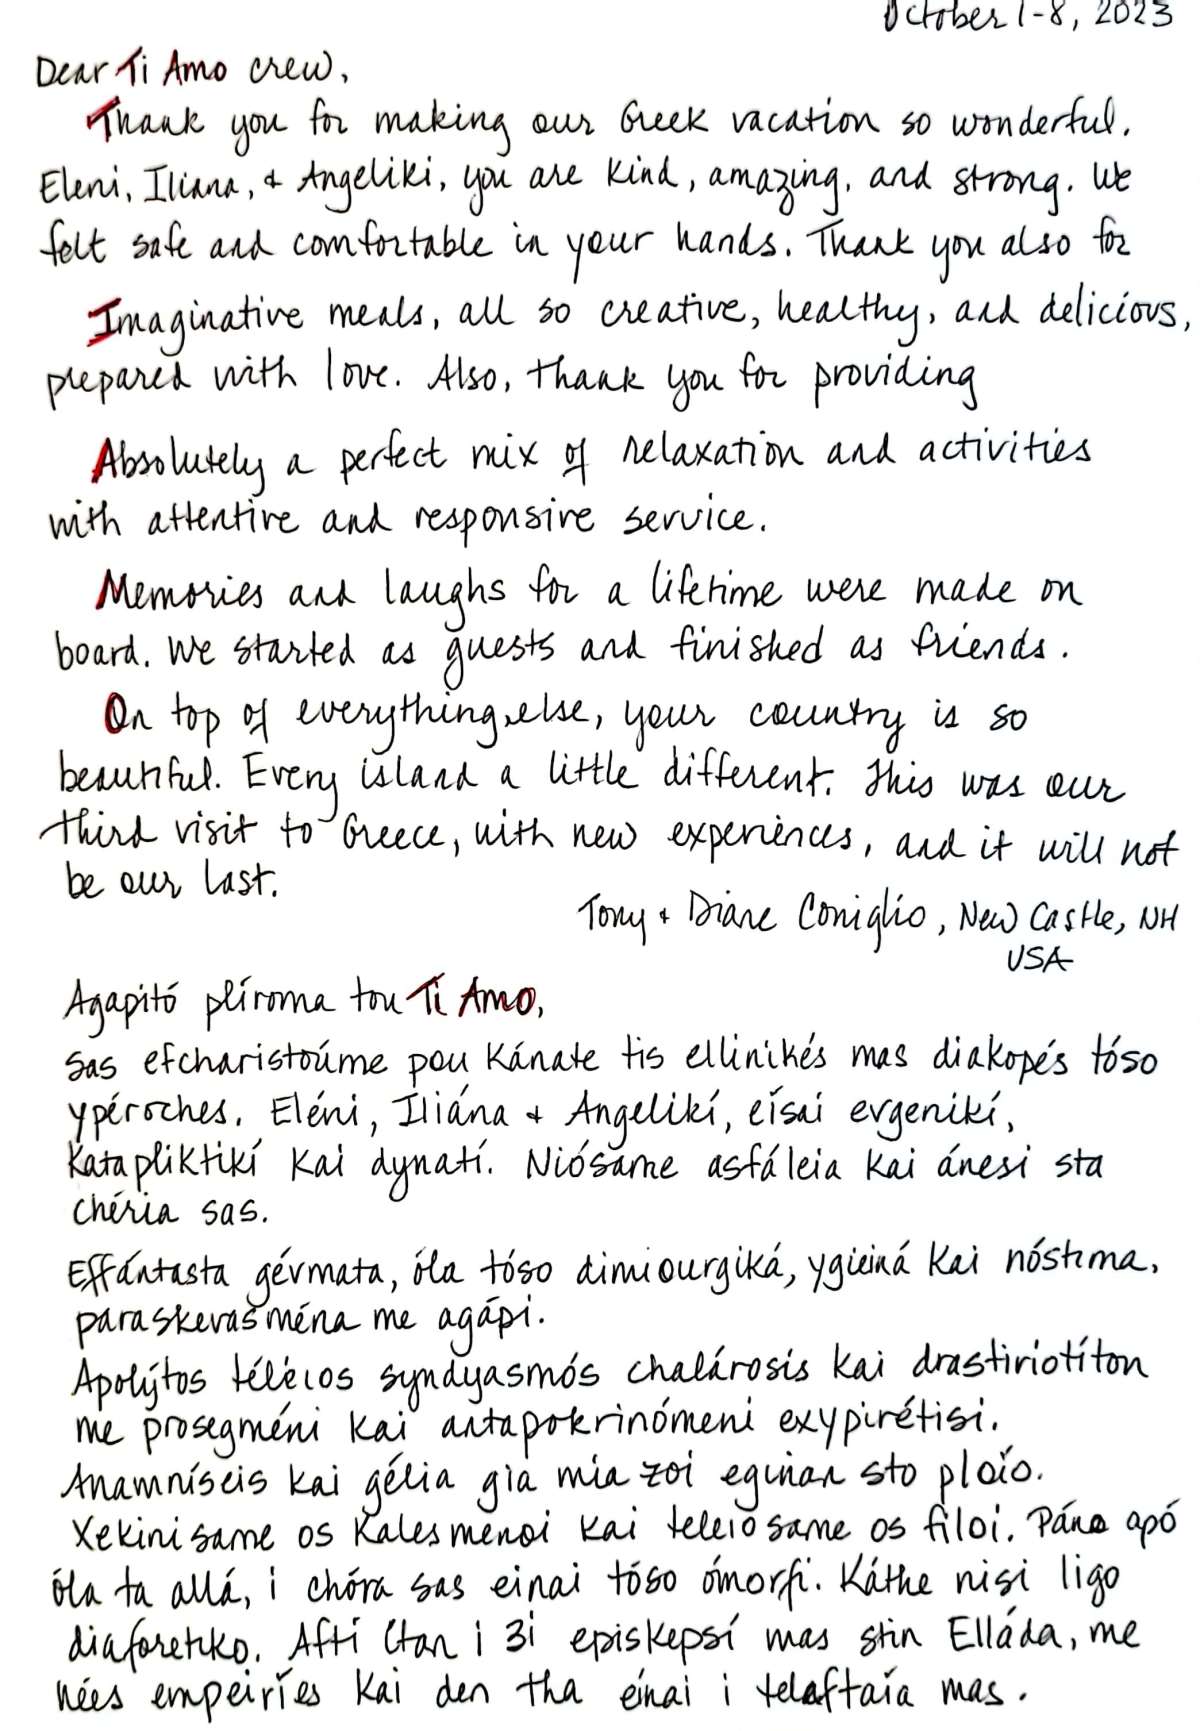 October 1-8, 2023
Dear Ti Amo crew,
Thank you for making our Greek vacation so wonderful.
Eleni, Iliana, & Angeliki, you are kind, amazing, and strong. We
felt safe and comfortable in your hands. Thank you also for
Imaginative meals, all so creative, healthy, and delicious,
prepared with love. Also, thank you for providing
Absolutely a perfect mix of relaxation and activities
with attentive and responsive service.
Memories and laughs for a lifetime were made on
board. We started as guests and finished as friends.
On top of everything else, your country is so
beautiful. Every island a little different. This was our
third visit to Greece, with new experiences, and it will not
be our last.
Tony & Diane Coniglio, New Castle, NH
USA
Agapitó plíroma tou Ti Amo,
sas efcharistoúme pou kánate tis ellinikés mas diakopés tóso
ypéroches. Eléni, Íliána & Angelikí, eísai evgenikí,
katapliktikí kai dynatí. Niósame asfáleia kai ánesi sta
chéria sas.
Effántasta gévmata, óla tóso dimiourgiká, ygieiná kai nóstima,
paraskevasména me agápi.
Apolýtos téléios syndyasmós chalárosis kai drastiriotíton
me prosegméni kai antapokrinómeni exypirétisi.
Anamníseis kai gélia gia mia zoi eginan sto ploío.
Xekinisame os kalesmenoi kai teleiósame os filoi. Páno apó
óla ta allá, i chóra sas einai tóso ómorfi. Káthe nisi ligo
diaforetiko. Aftí ítan i 3i episkepsí mas stin Elláda, me
nées empeiríes kai den tha eínai i telaftaía mas.